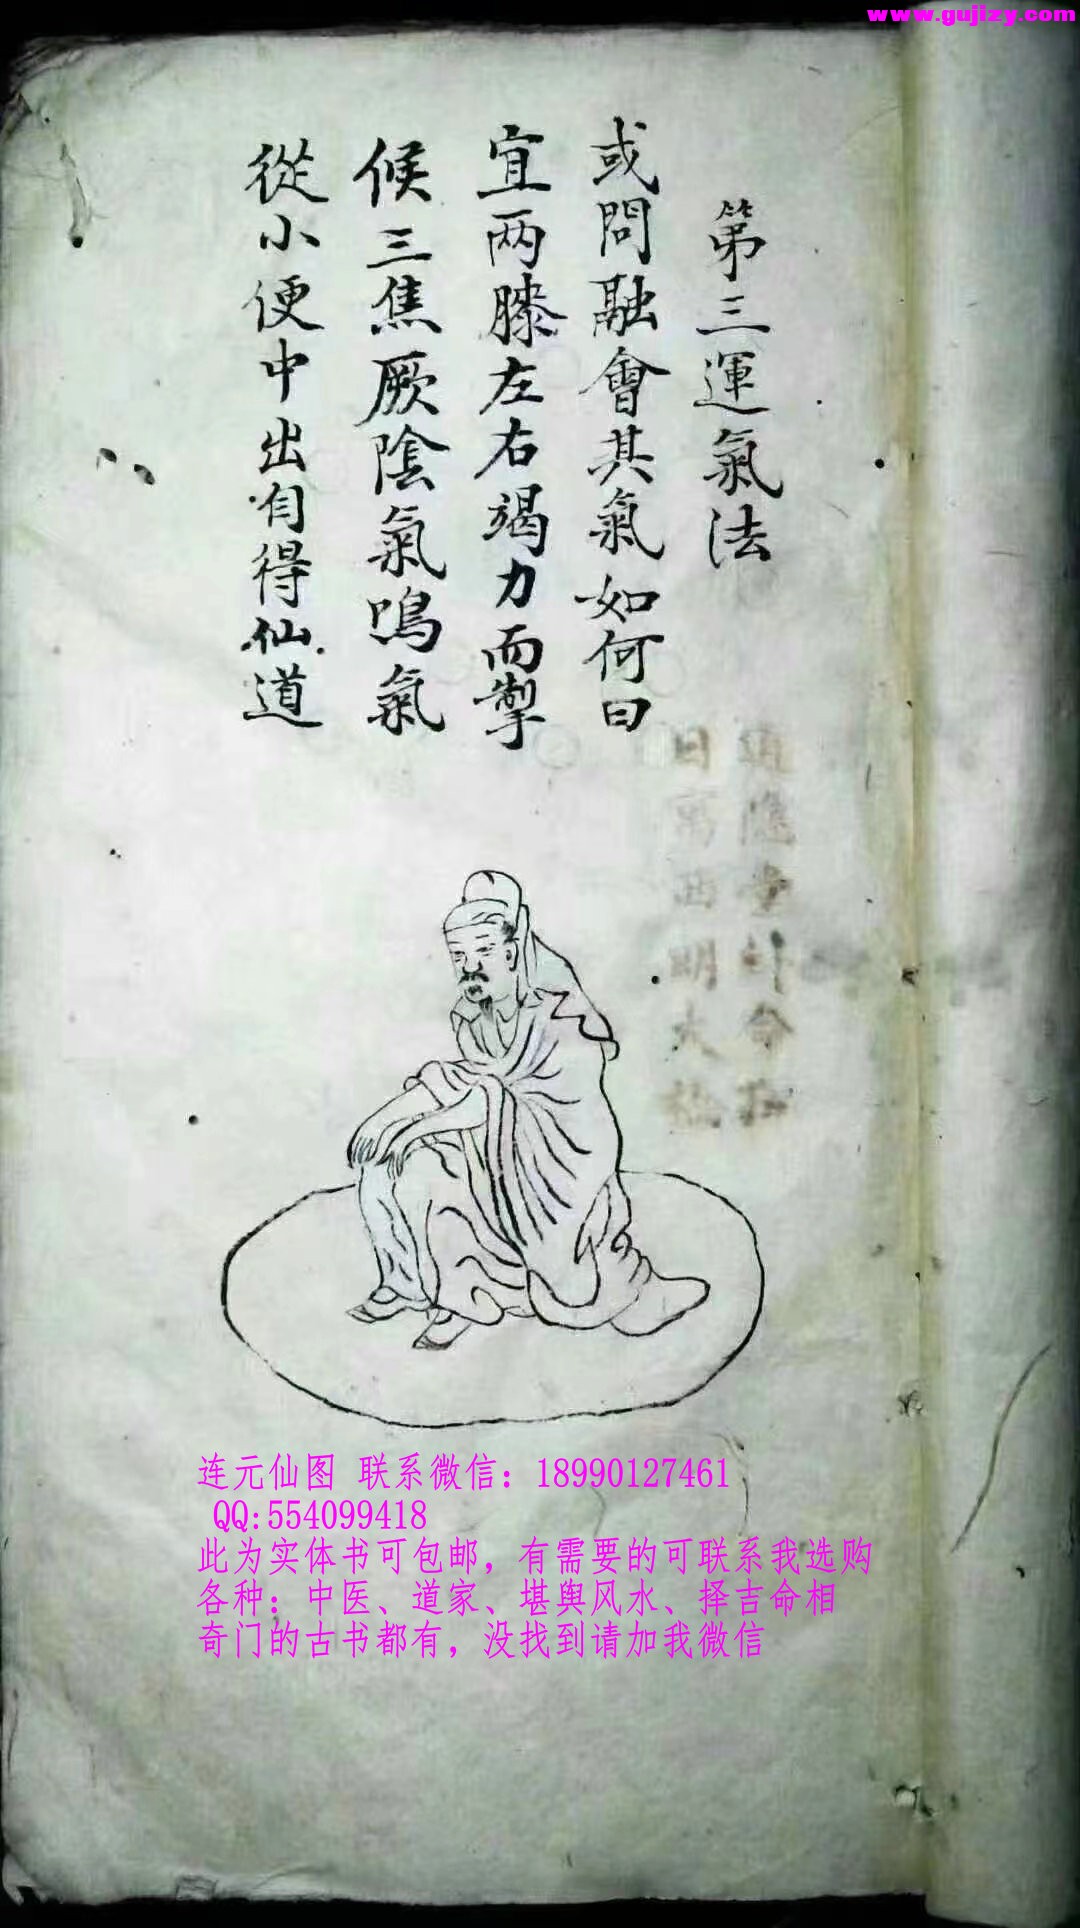 www.gujizy.com
第三運氣法
或問融會其氣如何曰
宜两膝左右竭力而掣
候三焦厥陰氣鳴氣
從小便中出自得仙道
连元仙图 联系微信：18990127461
QQ:554099418
此为实体书可包邮，有需要的可联系我选购
各种：中医、道家、堪舆风水、择吉命相
奇门的古书都有，没找到请加我微信